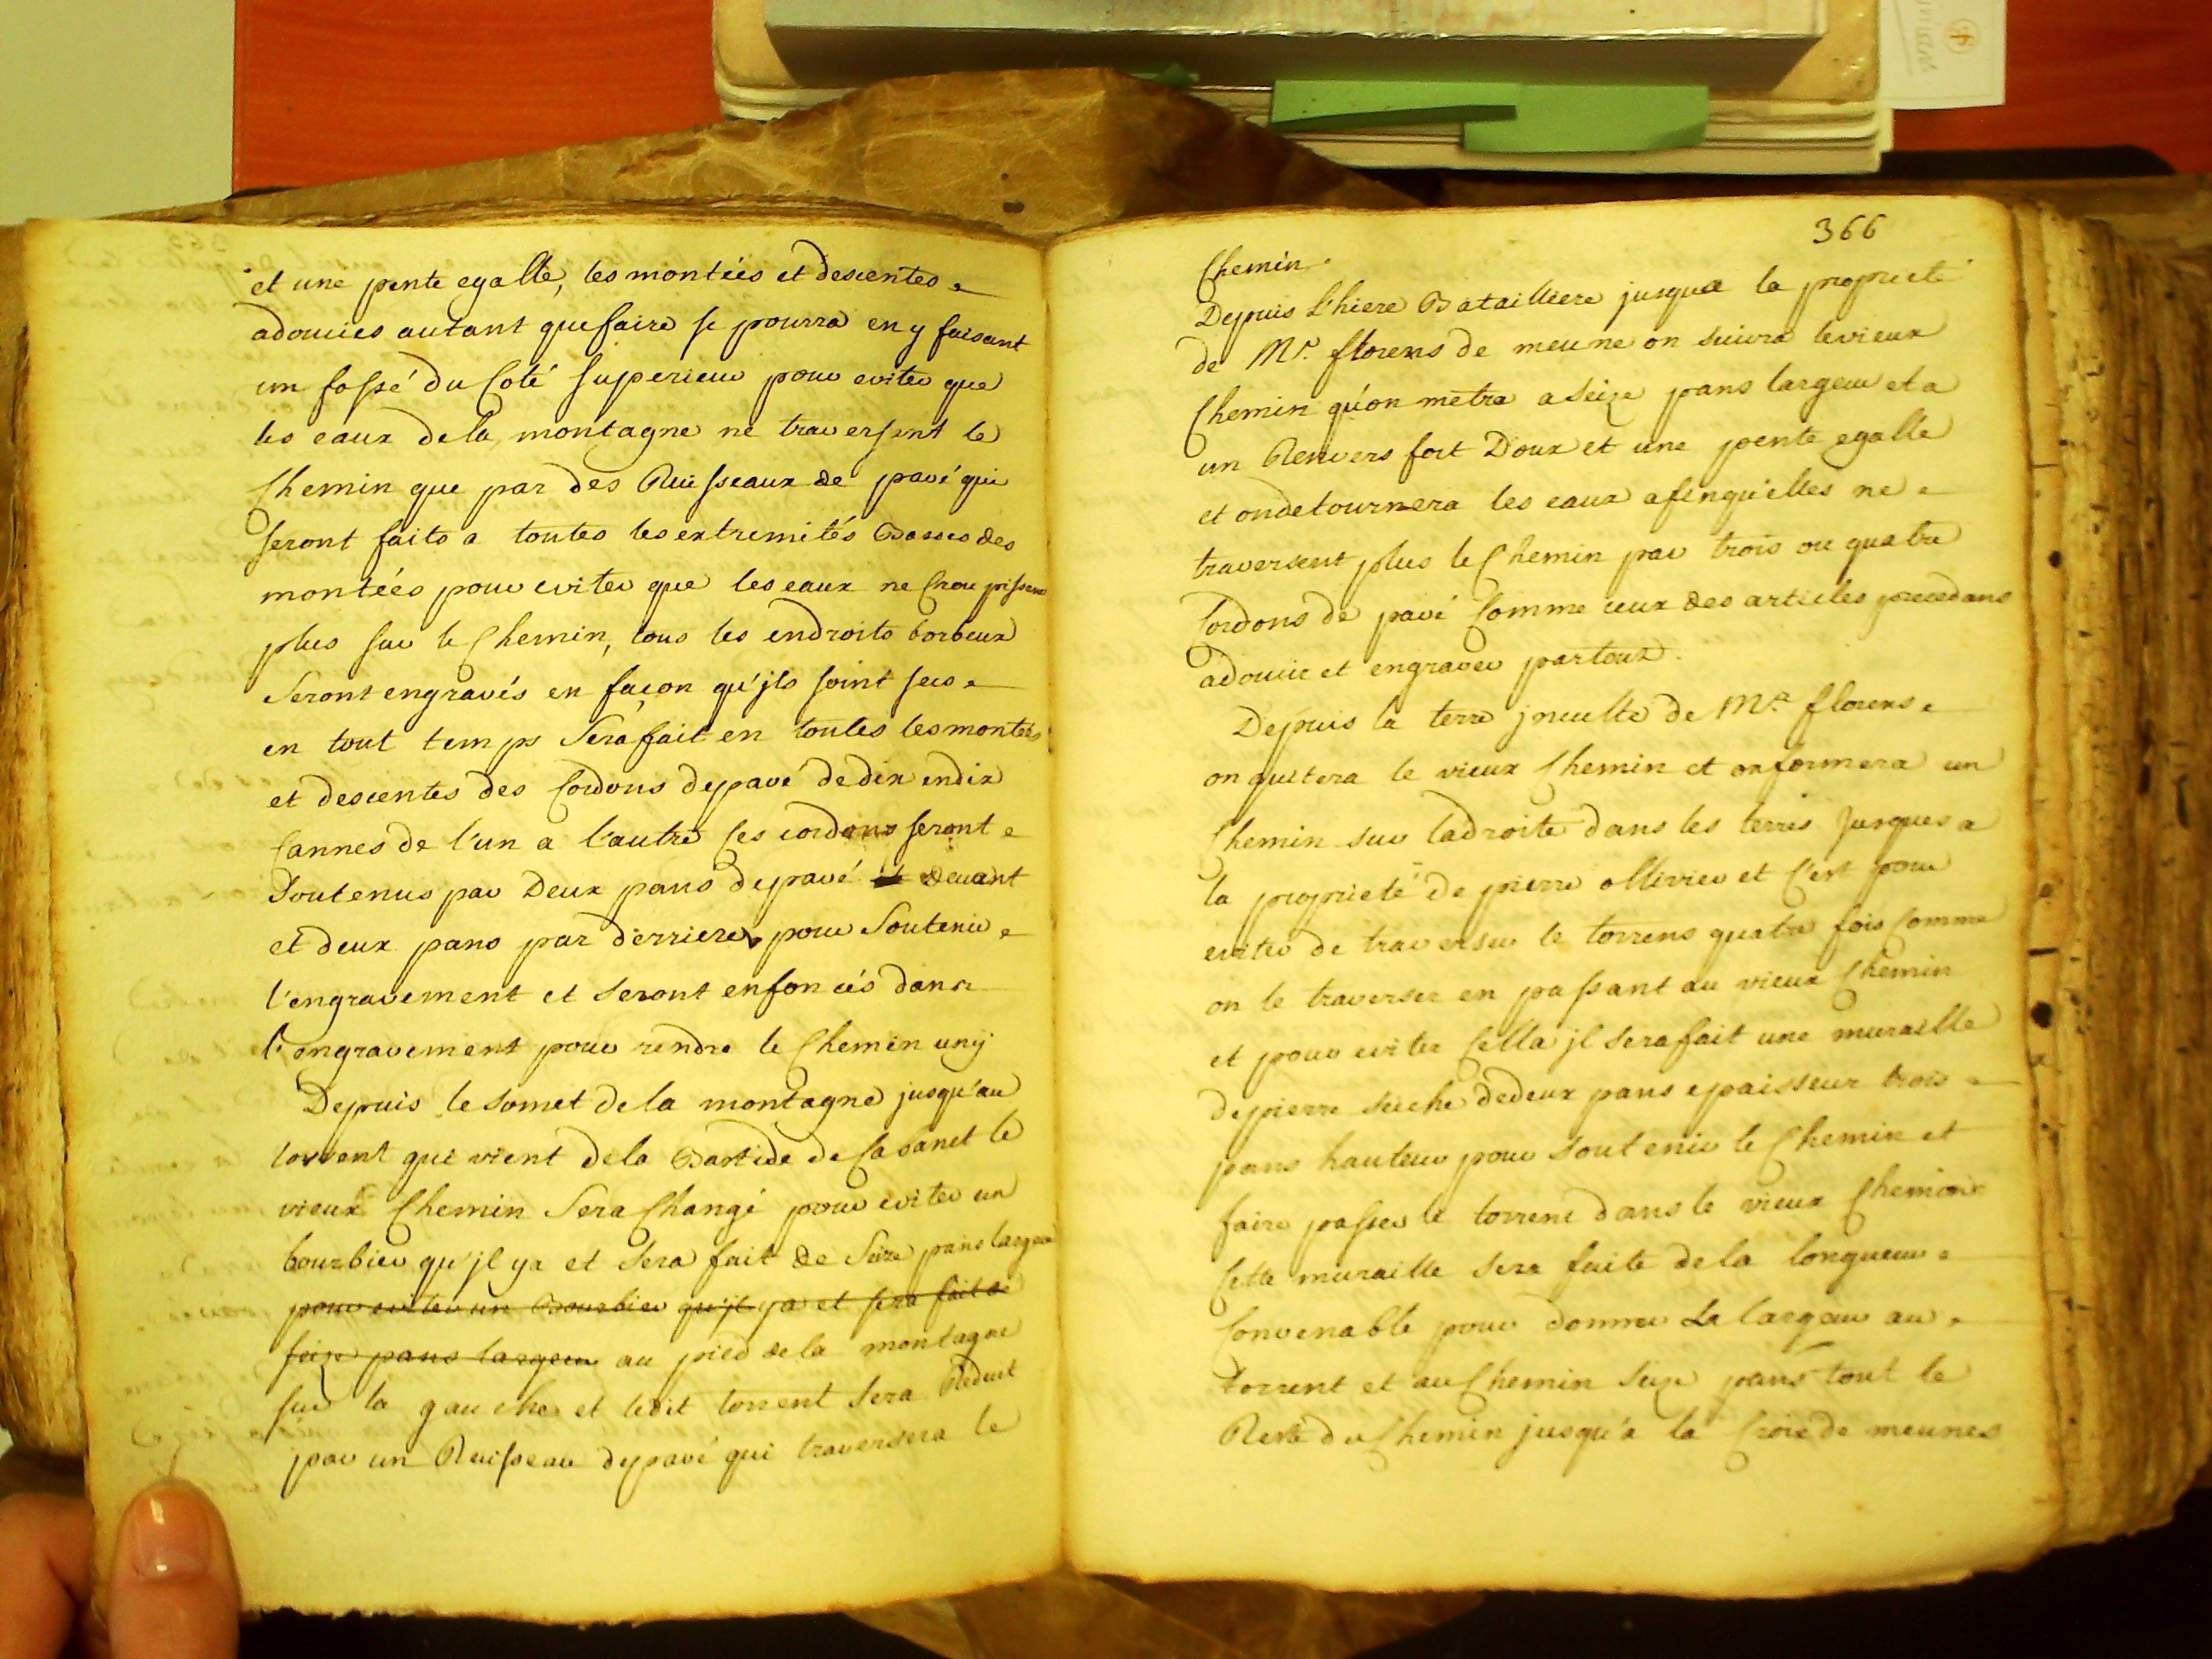 et une pente egalle, les montées et descentes
adoucies autant que faire se pourra en y faisant
un fossé du Coté superieur pour eviter que
les eaux de la montagne ne traversent le
Chemin que par des Ruisseaux de pavé qui
seront faits a toutes les extremités Basses des
montées pour eviter que les eaux ne Croupissent
plus sur le Chemin, tous les endroits borbeux
Seront engravés en façon qu'jls soint secs
en tout temps Sera fait en toutes les montées
et descentes des Cordons de pavé de dix en dix
Cannes de l'un a l'autre Ces cordons seront
Soutenus par Deux pans de pavé devant
et deux pans par derriere pour Soutenir
l'engravement et seront enfoncés dans
l'engravement pour rendre le Chemin unÿ
Depuis le somet de la montagne jusqu'au
torrent qui vient de la Bastide de Cabanet le
vieux Chemin Sera Changé pour eviter un
bourbier qu'jl ya et sera fait de Seize pans largeur
pour eviter un Bourbier qu'jl ya et sera fait de
seize pans largeur au pied de la montagne
sur la gauche et ledit torrent sera Reduit
par un Ruisseau de pavé qui traversera le
366
Chemin.
Depuis L'hiere Batailliere jusque a la proprieté
de Mr. florens de meune on suivra le vieux
Chemin qu'on metra a seize pans largeur et a
un Renvers fort Doux et une pente egalle
et on detournera les eaux afin qu'elles ne
traversent plus le Chemin par trois ou quatre
Cordons de pavé Comme ceux des articles precedans
adoucir et engraver par tout.
Depuis la terre jnculte de Mr. florens
on quitera le vieux Chemin et on formera un
Chemin sur la droite dans les terres Jusques a
la proprieté de pierre ollivier et C'est pour
eviter de traverser le torrens quatre fois Comme
on le traverser en passant au vieux Chemin
et pour eviter Cella jl sera fait une muraille
de pierre seiche de deux pans epaisseur trois
pans hauteur pour soutenir le Chemin et
faire passer le torrent dans le vieux Chemin
Cette muraille sera faite de la longueur
Convenable pour donner La largeur au
torrent et au Chemin seize pans tout le
Reste du Chemin jusqu'a la Croix de meunes